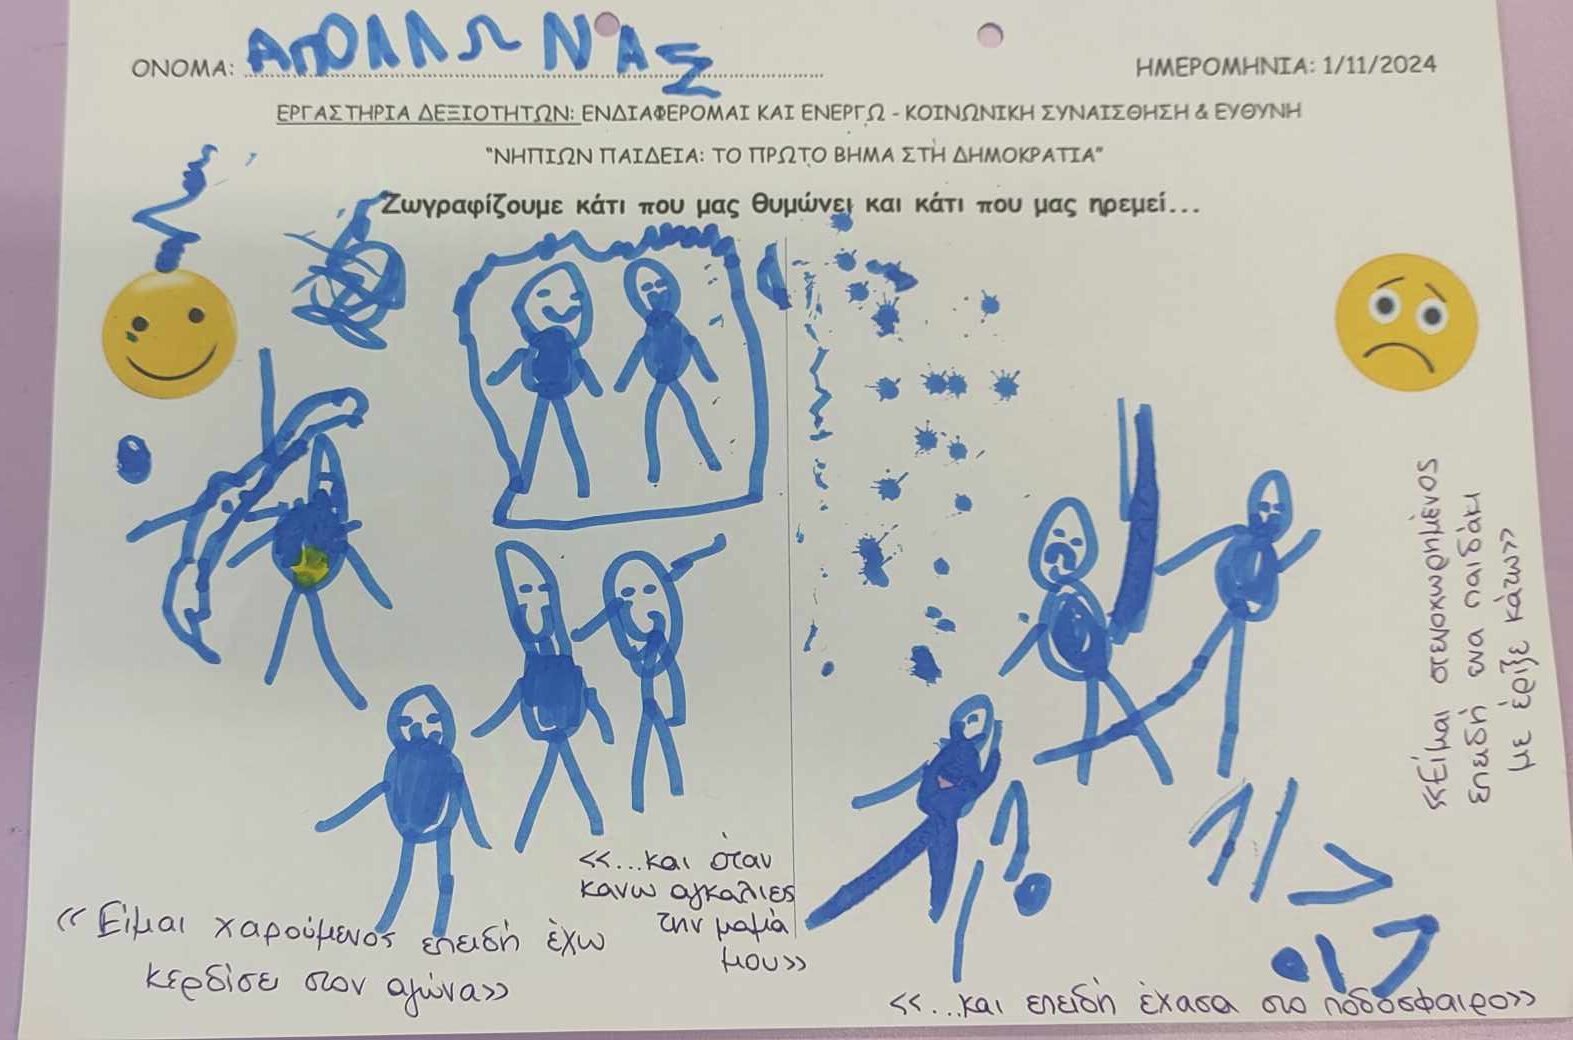 ΟΝΟΜΑ: ΑΠΟΛΛΩΝΑΣ
ΗΜΕΡΟΜΗΝΙΑ: 1/11/2024
ΕΡΓΑΣΤΗΡΙΑ ΔΕΞΙΟΤΗΤΩΝ: ΕΝΔΙΑΦΕΡΟΜΑΙ ΚΑΙ ΕΝΕΡΓΩ - ΚΟΙΝΩΝΙΚΗ ΣΥΝΑΙΣΘΗΣΗ & ΕΥΘΥΝΗ
"ΝΗΠΙΩΝ ΠΑΙΔΕΙΑ: ΤΟ ΠΡΩΤΟ ΒΗΜΑ ΣΤΗ ΔΗΜΟΚΡΑΤΙΑ"
Ζωγραφίζουμε κάτι που μας θυμώνει και κάτι που μας ηρεμεί...
«Είμαι χαρούμενος επειδή έχω
κερδίσε στον αγώνα»
«...και όταν
κάνω αγκαλιες
την μαμά
μου»
«Είμαι στενοχωρημένος
επειδή ενα παιδάκι
με έριξε κάτω»
«...και επειδή έχασα στο ποδόσφαιρο»